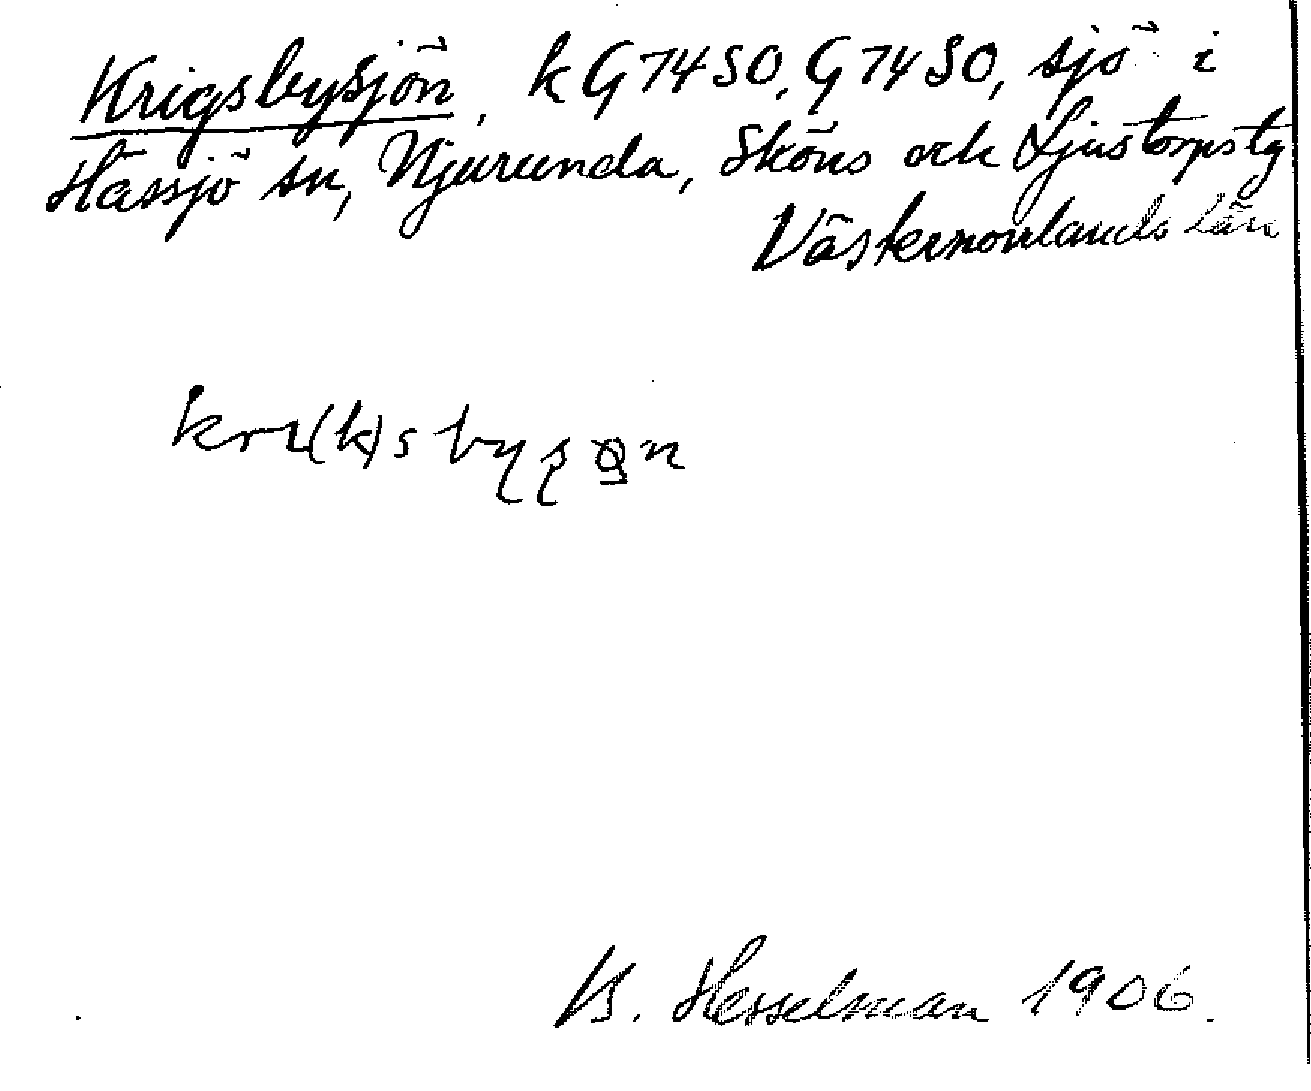 Krigsbysjön, k G 74 SO, G 74 SO, sjö i
Hässjö sn, Njurunda, Sköns och Ljustorps tg
Västernorrlands län
B. Hesselman 1906.